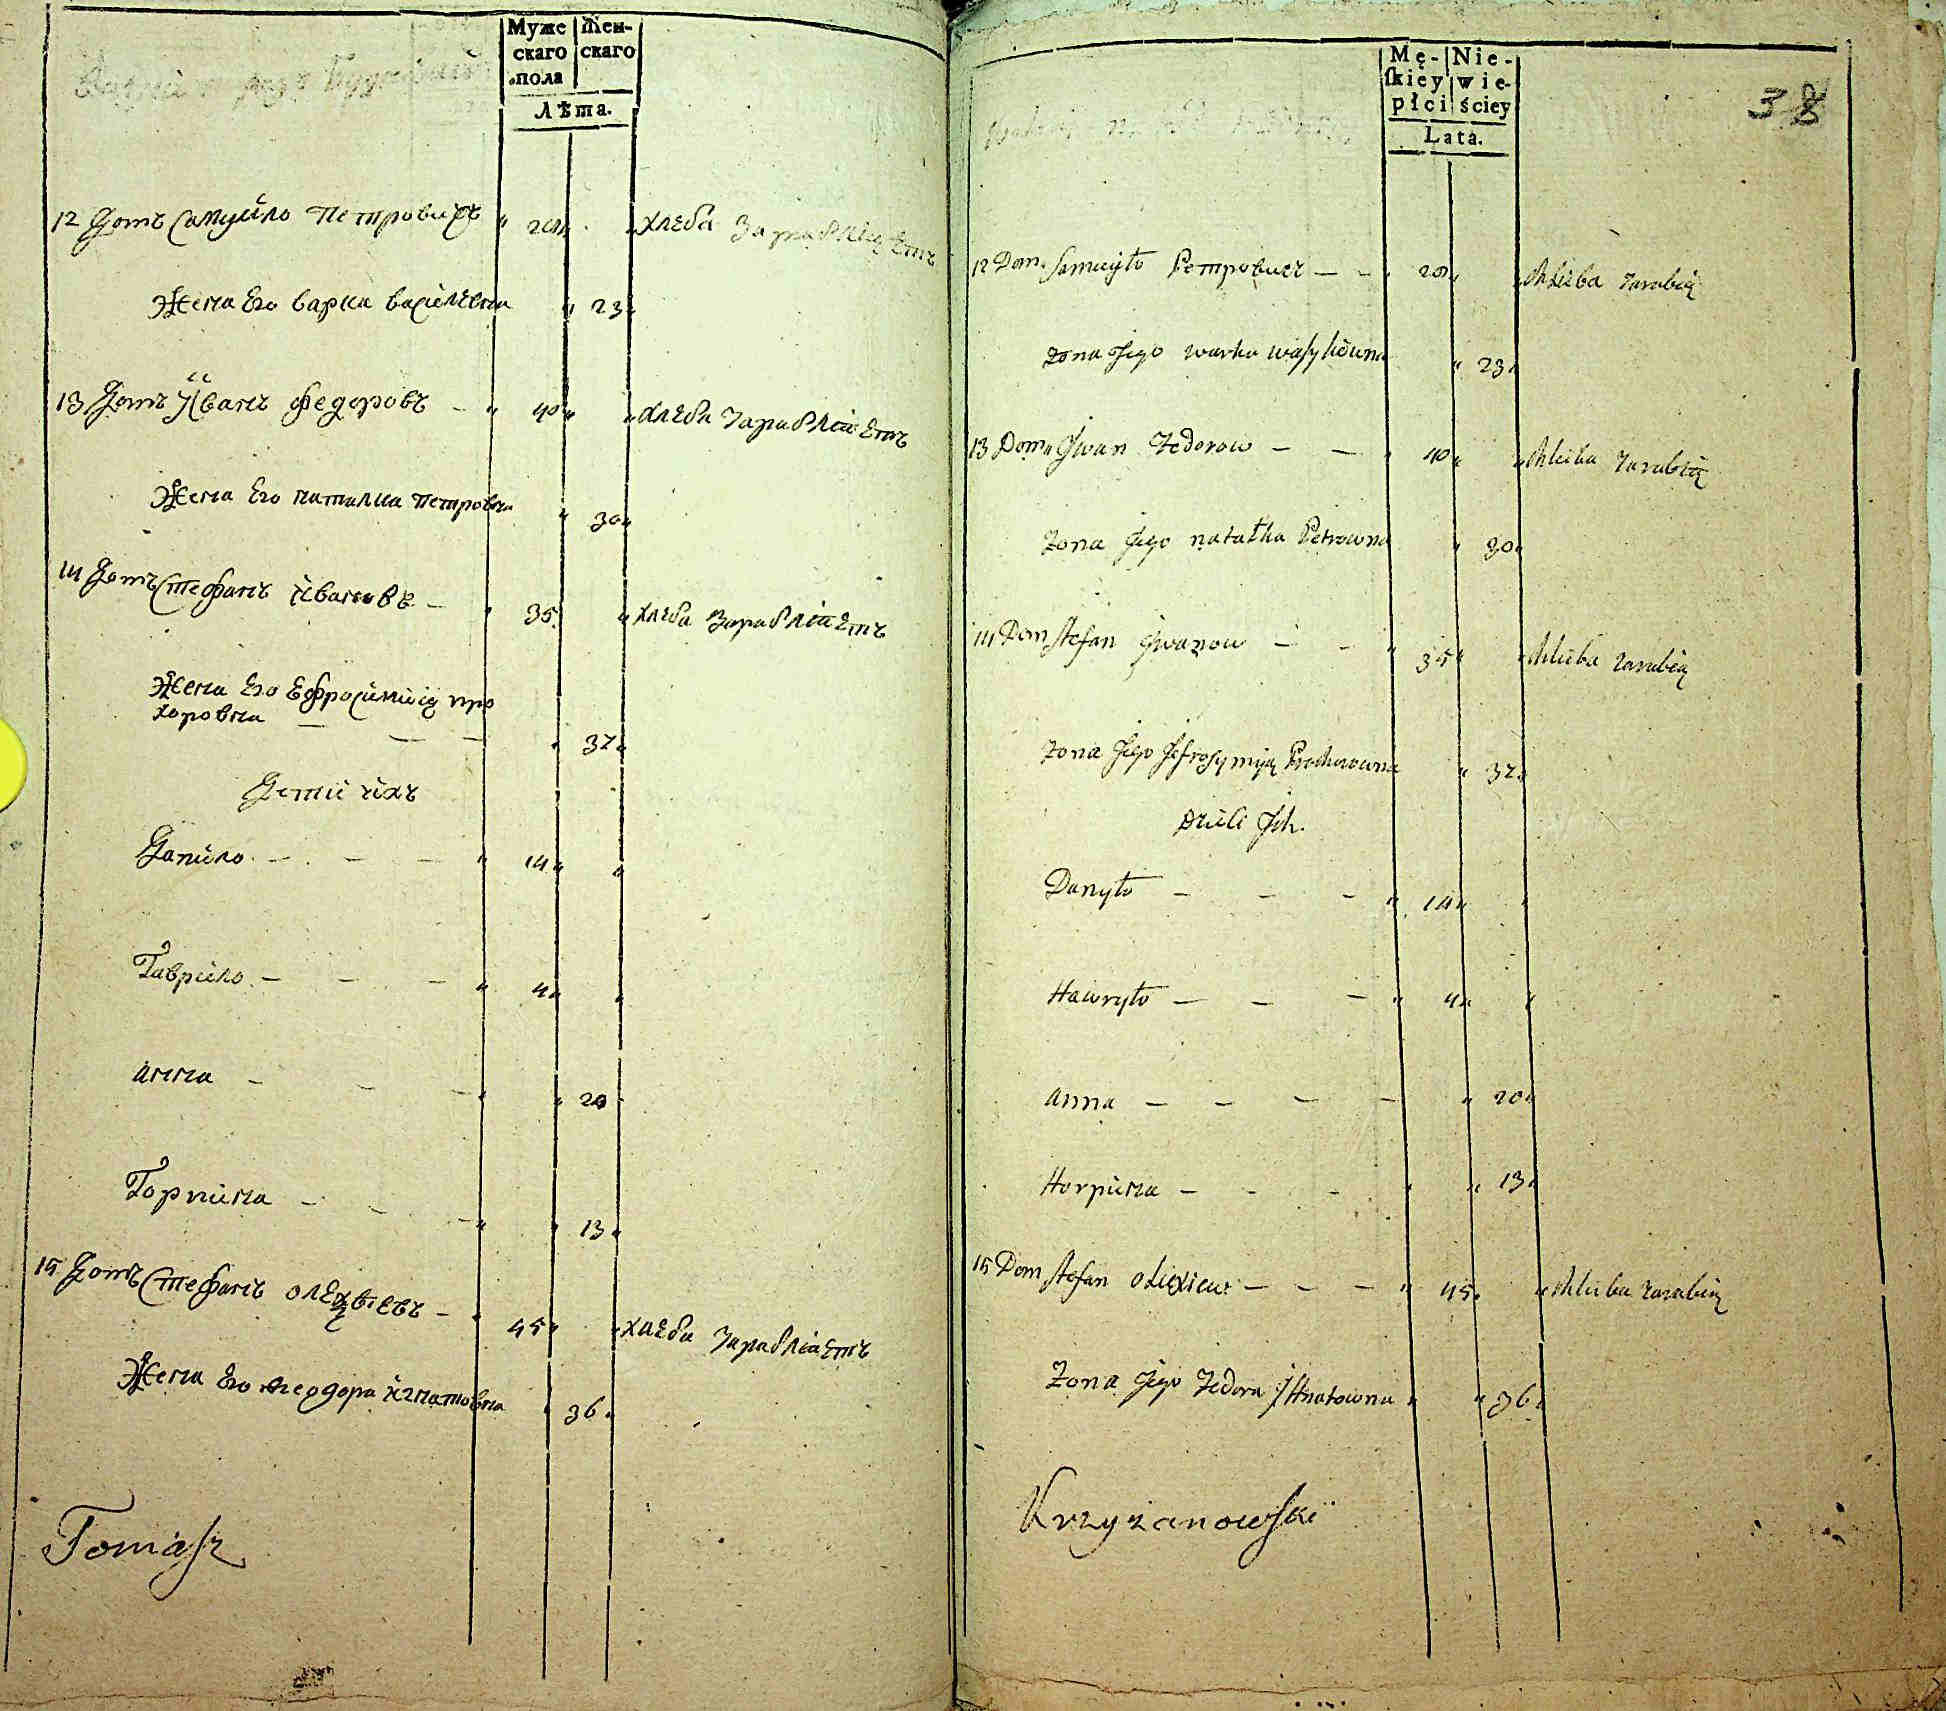 Муже скаго пола
Жен- скаго
Лѣта.
12 Домъ Самуйло Петровичъ " 20 " " хлеба зараблiаетъ
Жена Его варка василевна " 23 "
13 Домъ Иванъ Федоровъ – " 40 " " хлеба зараблiаетъ
Жена Его наталка Петровна " 30 "
14 Домъ Стефанъ Ивановъ – " 35 " " хлеба зараблiаетъ
Жена Его Ефросинiя про
хоровна – – – " 37 "
Дети ихъ
Данило – – – " 14 " "
Гаврило – – – " 4 " "
анна – – – " " 20
Горпина – – – " " 13 "
15 Домъ Стефанъ олеѯѣевъ – " 45 " " хлеба зараблiаетъ
Жена Его Феодора игнатовна " 36 "
Tomasz
Mę- ſkiey płci
Nie- wie- ściey
Lata.
38
12 Dom Samuyło Петровичъ – – " 20 " " chleba zarabia
Zona Jego warka wasylowna " 23 "
13 Dom Jwan Fedorow – – " 40 " " chleba zarabia
Zona Jego natałka Petrowna " 30 "
14 Dom Stefan Jwanow – – " 35 " " chleba zarabia
Zona Jego Jefrosyniia Prochorowna " 37 "
Dzieci Jch.
Danyło – – – " 14 " "
Hawryło – – – " 4 " "
anna – – – – " 20 "
Horpina – – – " " 13 "
15 Dom Stefan olexiew – – – " 45 " " chleba zarabia
Zona Jego Fedora Jhnatowna " " 36 "
Krzyżanowski